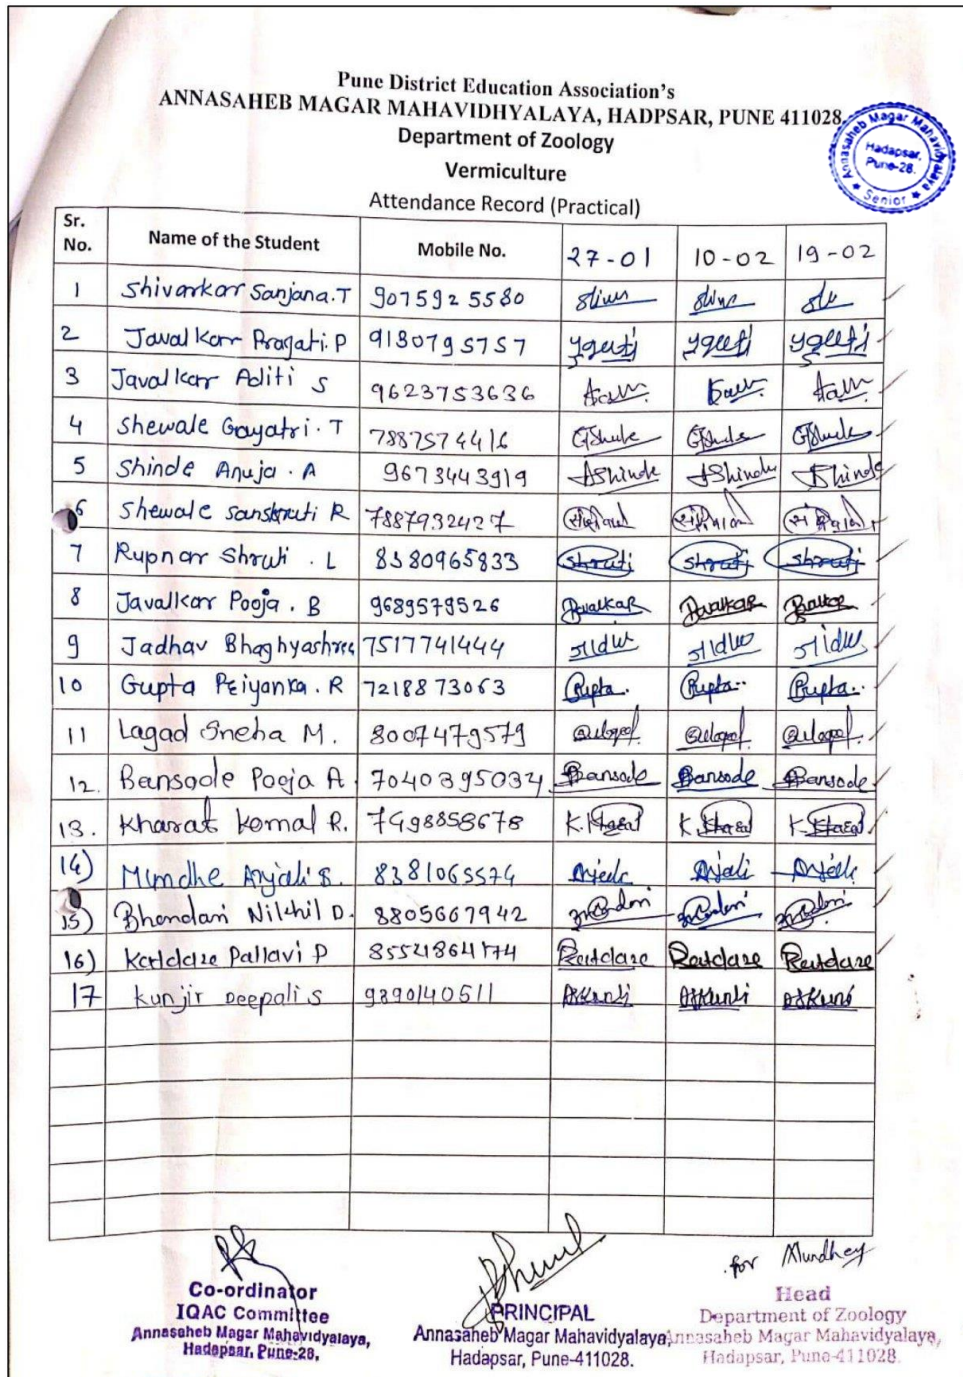 Pune District Education Association's
ANNASAHEB MAGAR MAHAVIDHYALAYA, HADPSAR, PUNE 411028
Department of Zoology
Vermiculture
Attendance Record (Practical)
Annasaheb Magar Mahavidyalaya
Hadapsar,
Pune-28.
★ Senior ★
Sr. No. Name of the Student Mobile No. 27-01 10-02 19-02
1 Shivarkar Sanjana.T 9075925580
2 Javalkar Pragati.P 9130795757
3 Javalkar Aditi S 9623753636
4 Shewale Gayatri.T 7887574416 GShewale GShewale GShewale
5 Shinde Anuja.A 9673443919 AShinde AShinde AShinde
6 Shewale Sanskruti R 7887932427
7 Rupnar Shruti.L 8380965833 Shruti Shruti Shruti
8 Javalkar Pooja.B 9689579526 Javalkar Javalkar
9 Jadhav Bhaghyashree 7517741444 जाधव जाधव जाधव
10 Gupta Peiyanka.R 7218873063 Gupta. Gupta.. Gupta..
11 Lagad Sneha M. 8007479579
12. Bansode Pooja A. 7040395034 Bansode Bansode Bansode
13. Kharat Komal R. 7498858678 K.Kharat K.Kharat K.Kharat
14) Mundhe Anjali B. 8381065574 Anjali Anjali Anjali
15) Bhandari Nikhil D. 8805667942
16) Pallavi P
17 Kunjir Deepali S 9890140511
for Mundhey
Co-ordinator
IQAC Committee
Annasaheb Magar Mahavidyalaya,
Hadapsar, Pune-28.
PRINCIPAL
Annasaheb Magar Mahavidyalaya
Hadapsar, Pune-411028.
Head
Department of Zoology
Annasaheb Magar Mahavidyalaya,
Hadapsar, Pune-411028.